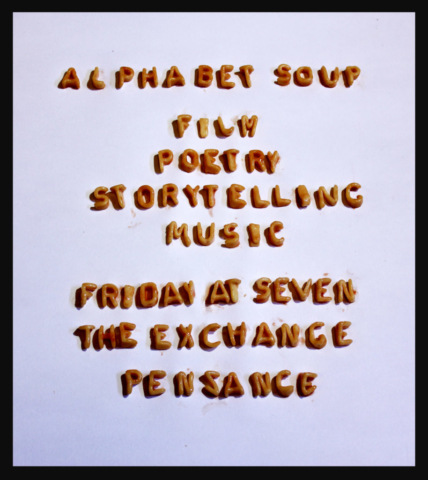 ALPHABET SOUP
FILM
POETRY
STORYTELLING
MUSIC
FRIDAY AT SEVEN
THE EXCHANGE
PENSANCE